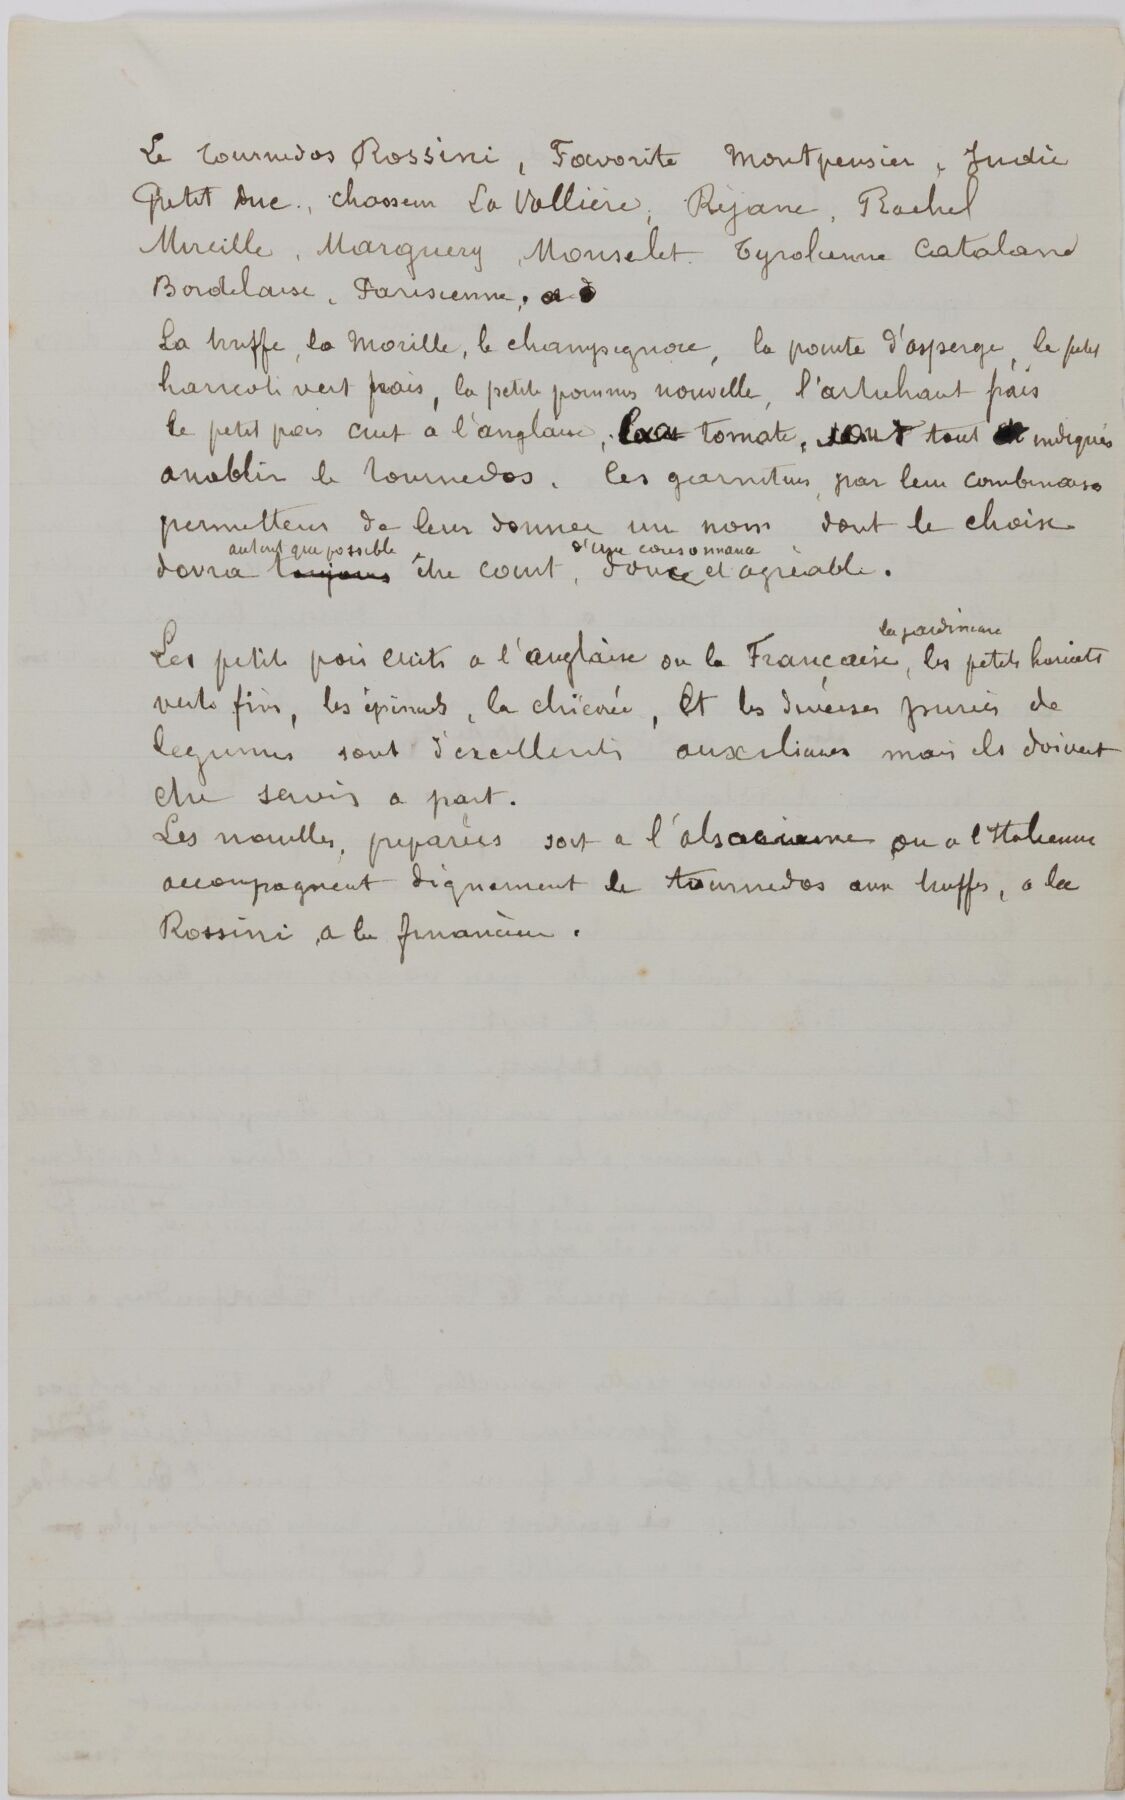 Le tournedos Rossini, Favorite Montpensier, Judic
Petit Duc, chasseur La Vallière, Réjane, Rachel
Mireille, Marguery, Monselet. Tyrolienne Catalane
Bordelaise, Parisienne,
La truffe, la Morille, le champignon, la pointe d'asperge, le petit
haricots vert frais, la petite pommes nouvelle, l'artichaut frais
le petit pois cuit a l'anglaise, tomate, tout indiqués
anoblir le tournedos. les garnitures, par leur combinaison
permettent de leur donner un nom dont le choix
autant que possible d'une consonnance
devra toujours être court, douce et agréable.
la jardiniere
Les petits pois cuits a l'anglaise ou la Française, les petits haricots
verts fins, les épinards, la chicorée, Et les diverses purées de
legumes sont d'excellents auxiliaires mais ils doivent
etre servis a part.
Les nouilles, preparées soit a l'alsacienne ou a l'Italienne
accompagnent dignement le tournedos aux truffes, a la
Rossini, a la financiere.